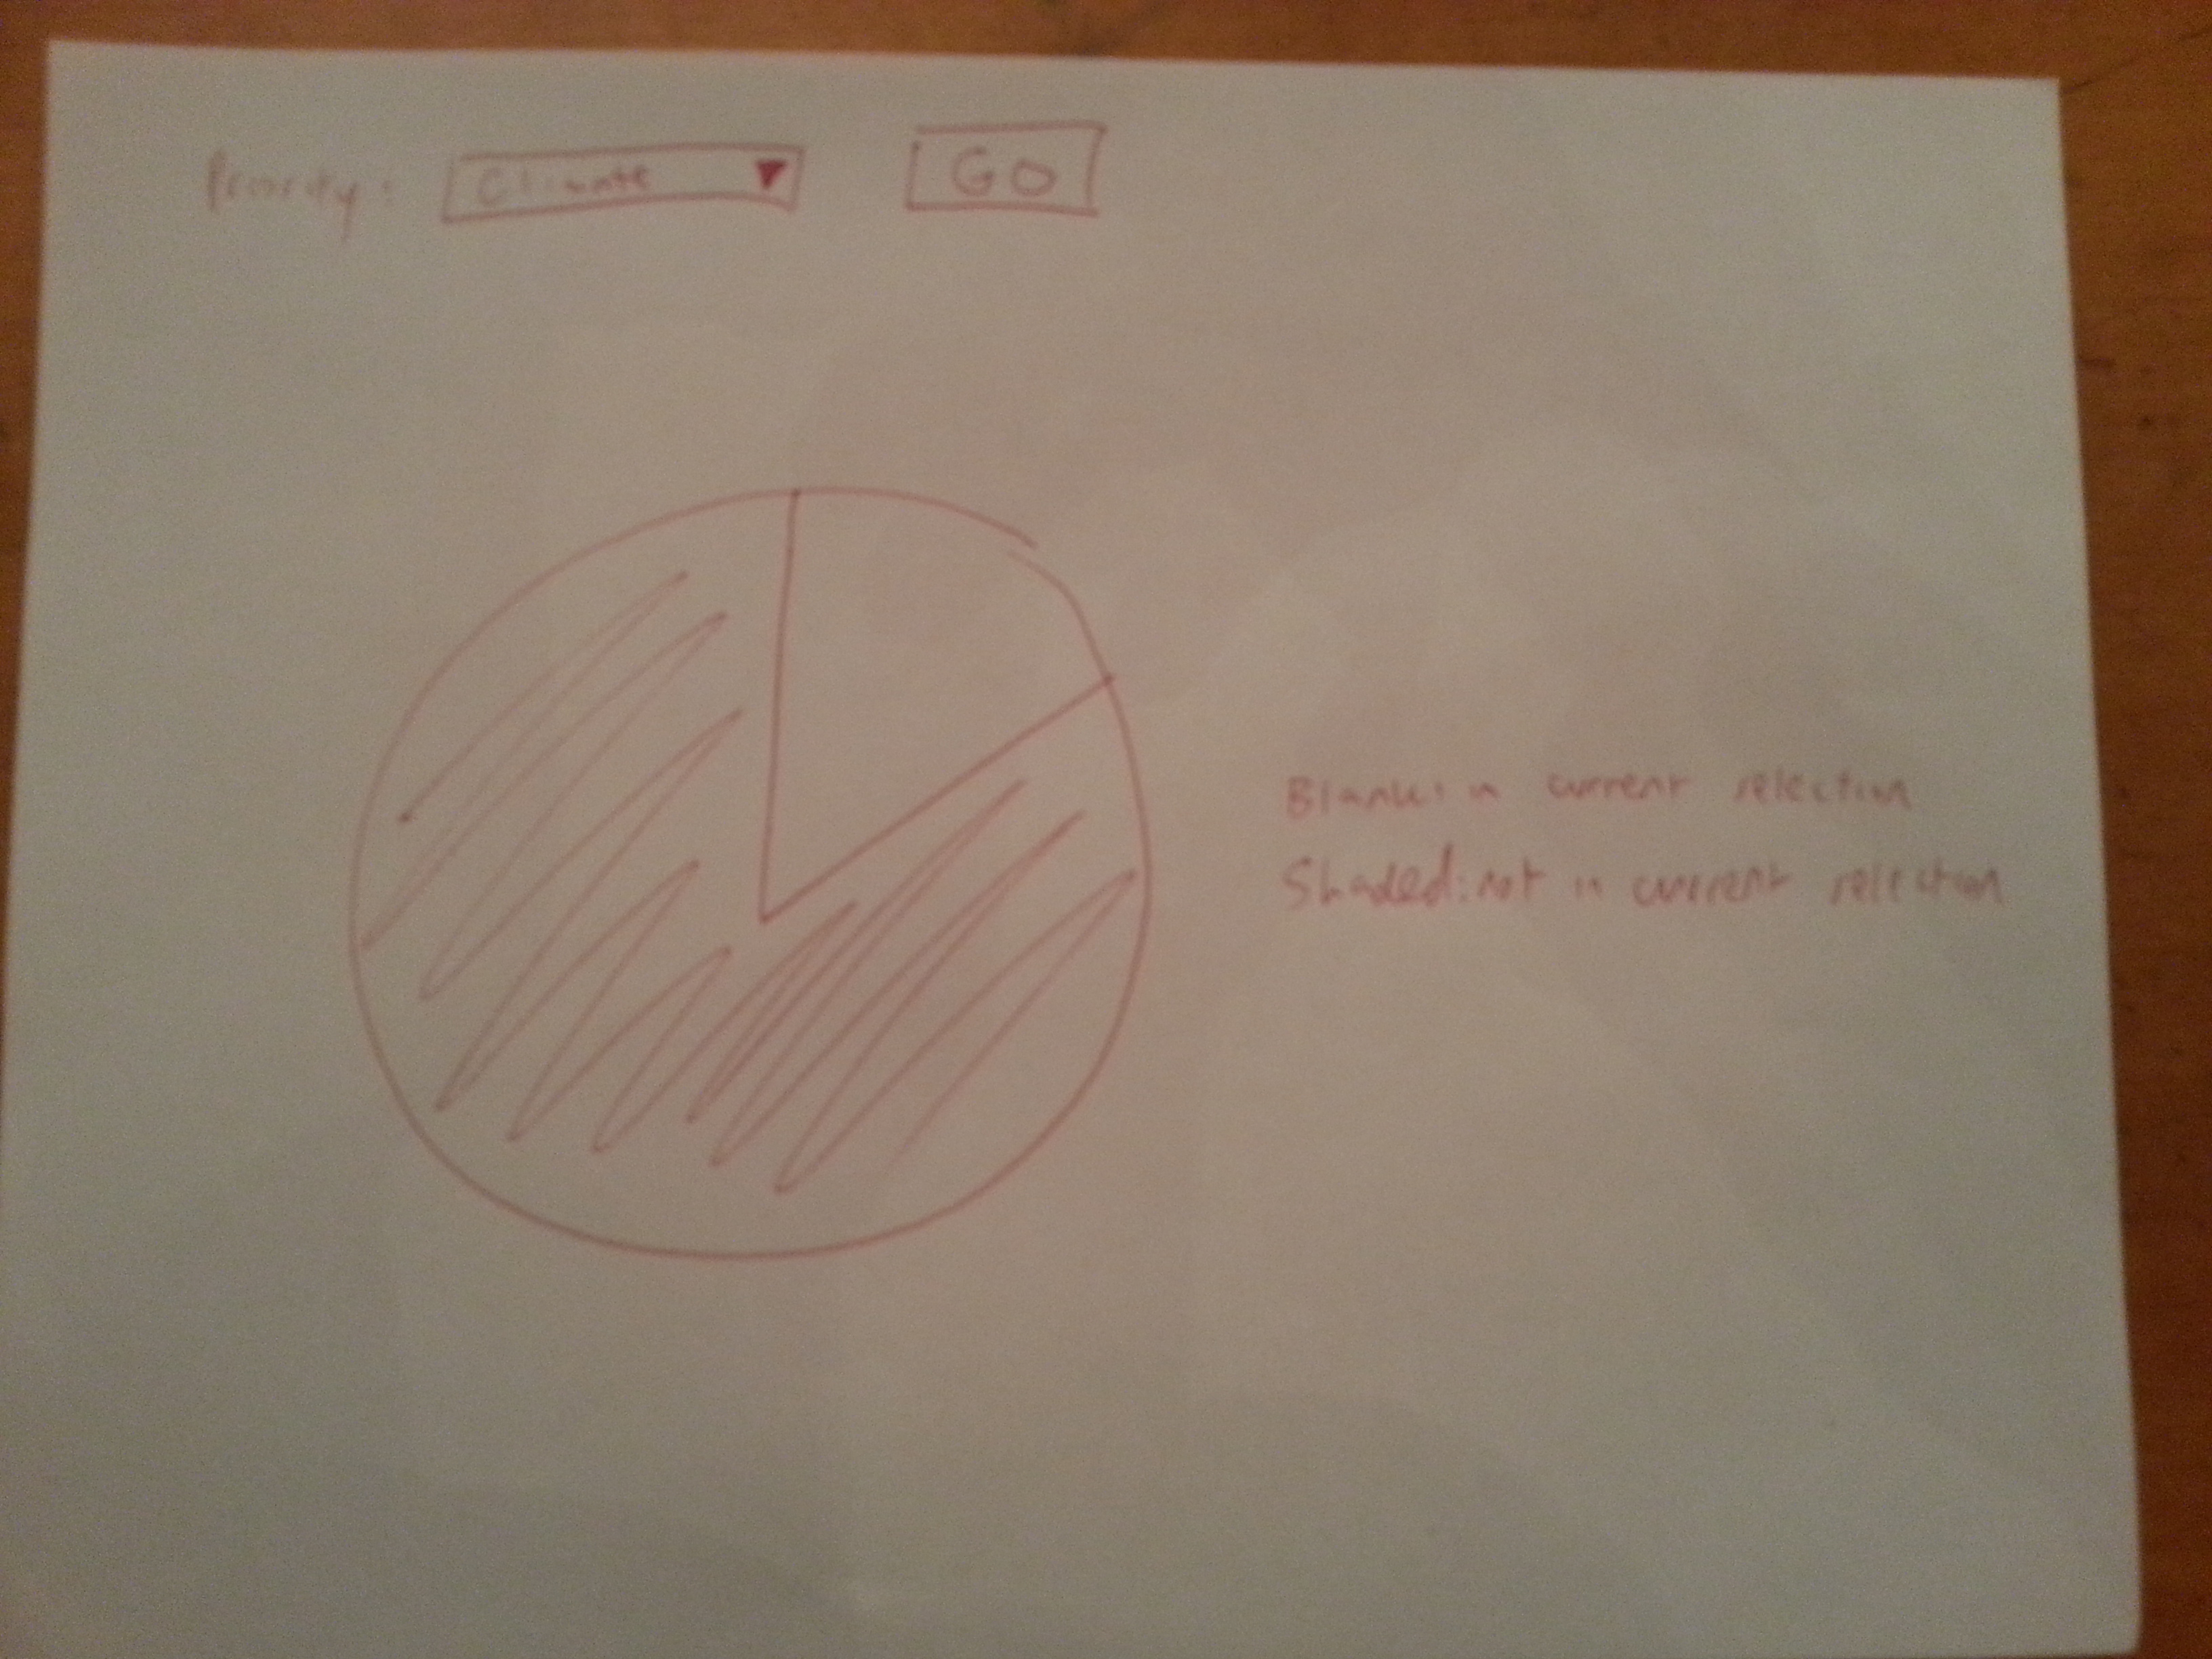 Priority: Climate GO
Blank: in current selection
Shaded: not in current selection